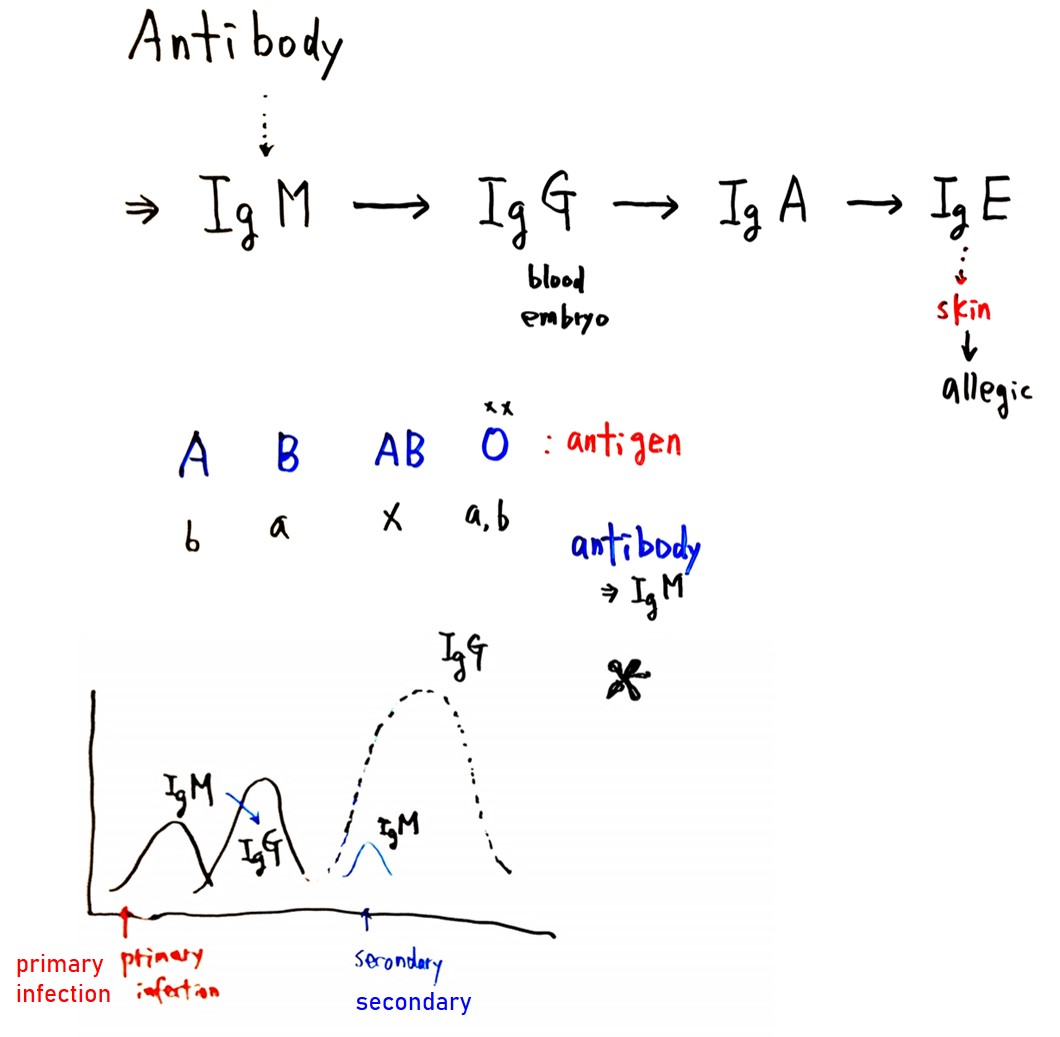 Antibody
⇒ IgM → IgG → IgA → IgE
blood
embryo
skin
↓
allegic
x x
A B AB O : antigen
b a x a,b
antibody
⇒ IgM
IgG
IgM
IgG
IgM
primary
infection
primary
infection
secondary
secondary